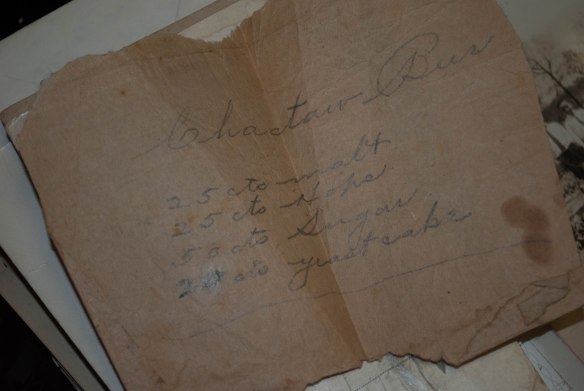 Choctaw Beer
25 cts malt
25 cts Hops
.50 cts Sugar
cts yeast cake